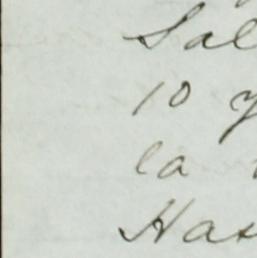 Sal
10 y
la
Has